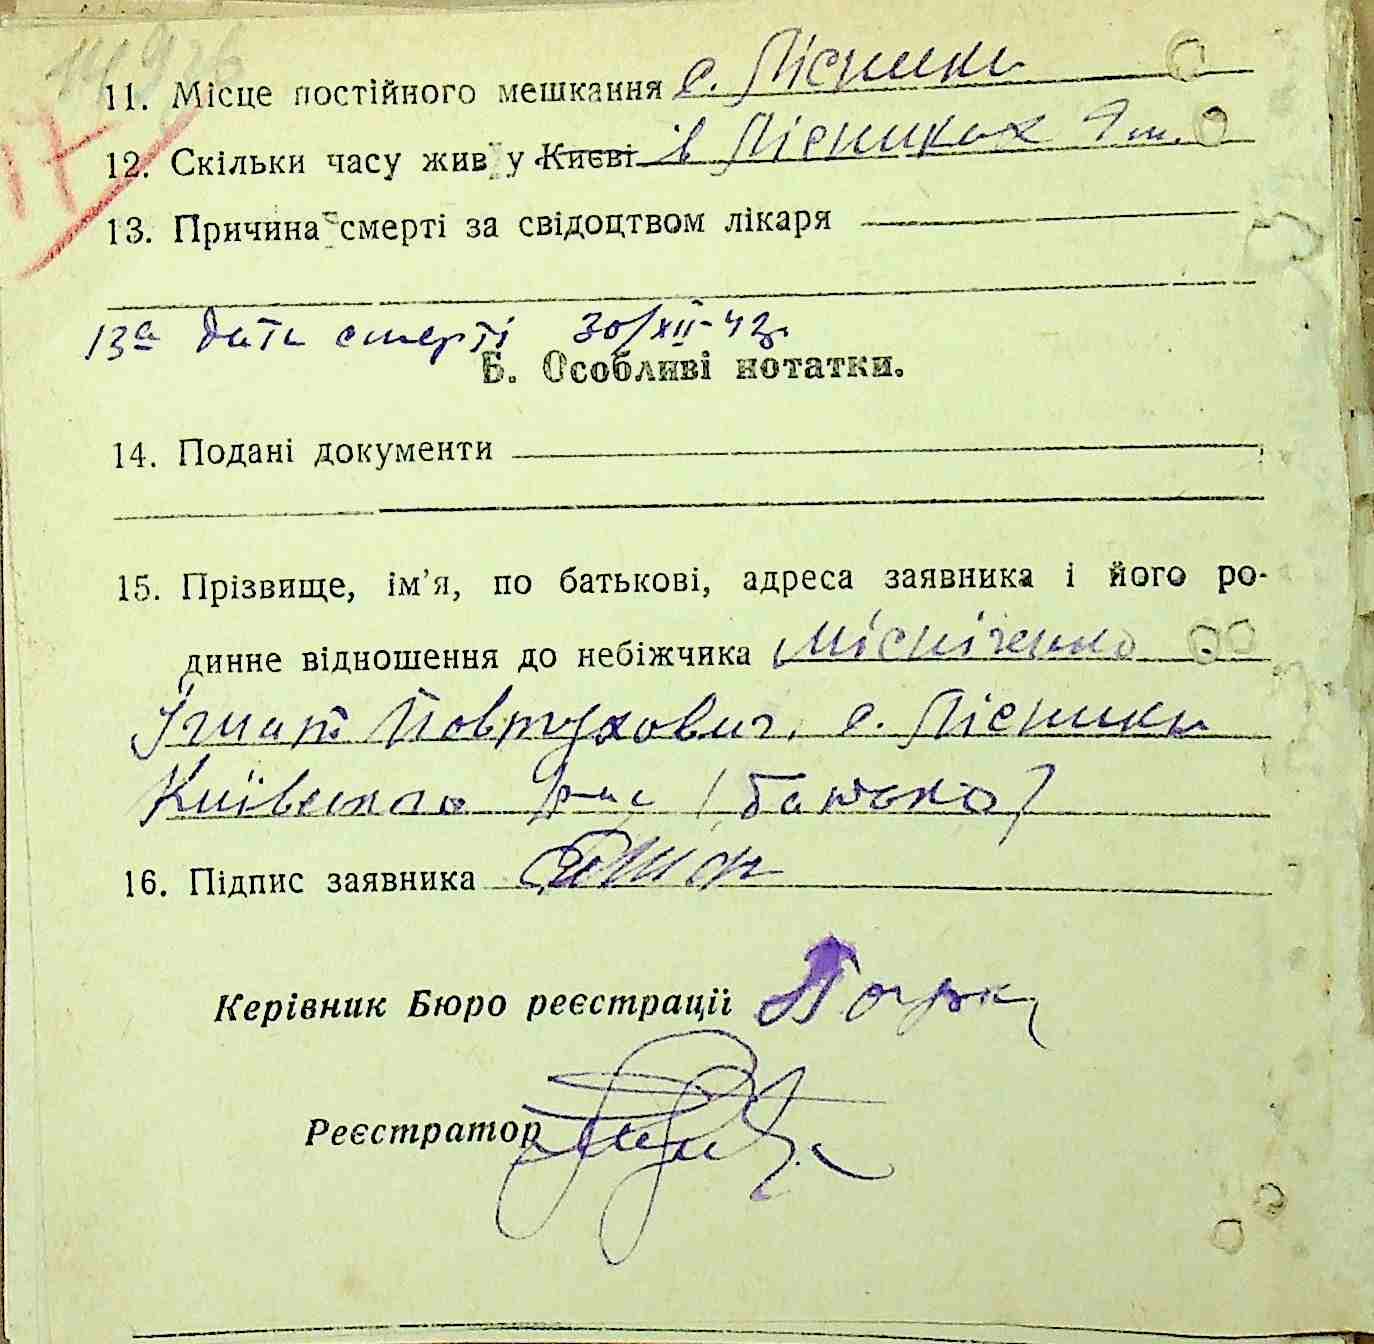 11. Місце постійного мешкання с. Лісники
12. Скільки часу жив у Києві в Лісниках
13. Причина смерті за свідоцтвом лікаря
13а Дата смерті 30/XII-42р.
Б. Особливі нотатки.
14. Подані документи
15. Прізвище, ім'я, по батькові, адреса заявника і його ро-
динне відношення до небіжчика Місніченко
Ігнат Йовтухович, с. Лісники
Київського р-ну (батько)
16. Підпис заявника
Керівник Бюро реєстрації
Реєстратор